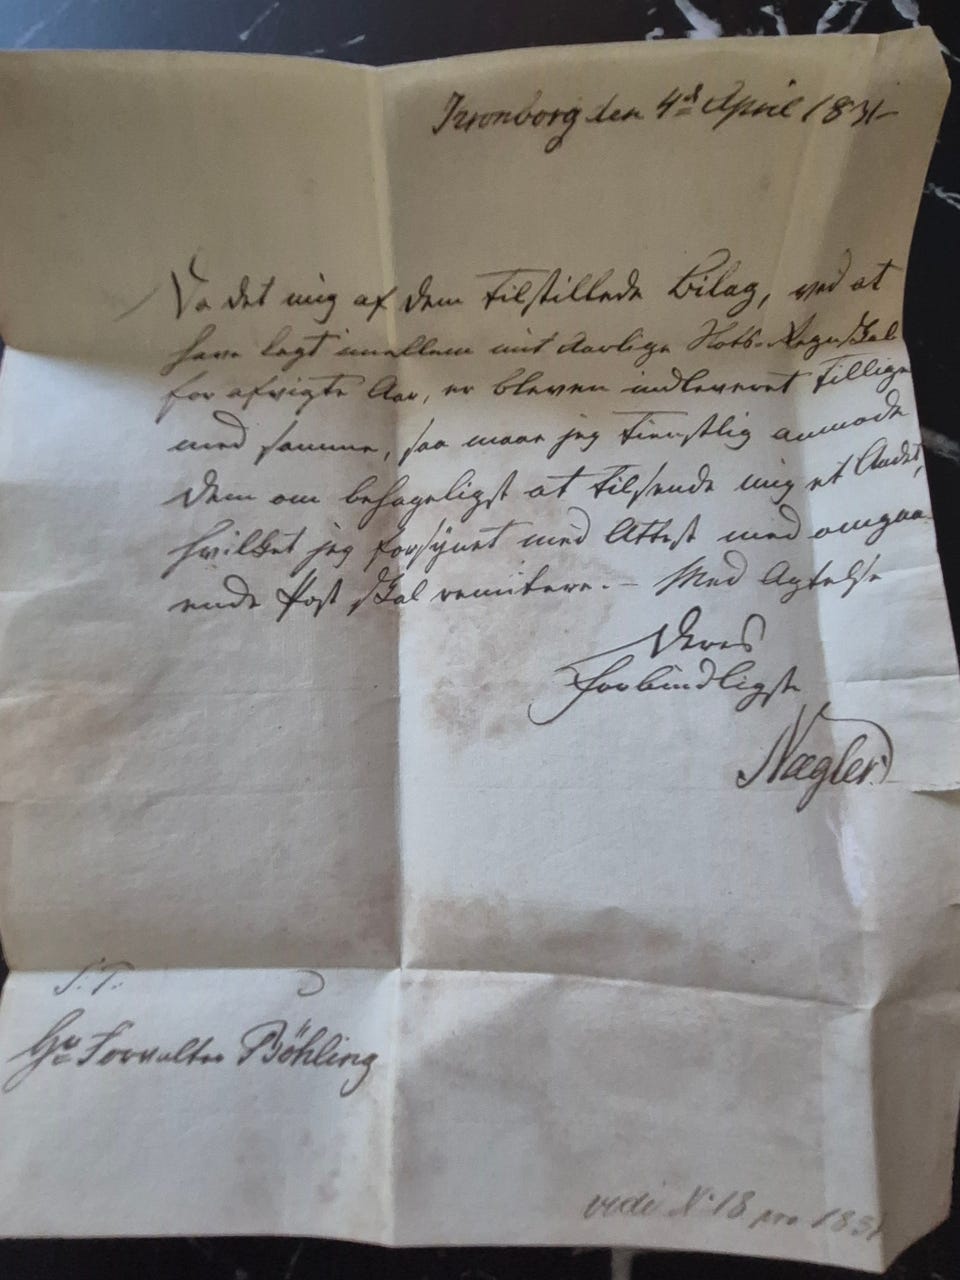 Kronborg den 4de April 1831
Da det mig af dem tilstillede Bilag, ved at
have lagt imellem mit Aarlige Regnskab
for afvigte Aar, er bleven indleveret tillige
med samme, saa maae jeg tienstlig anmode
Dem om behageligst at tilsende mig et Andet,
hvilket jeg forsÿnet med Attest med omgaa-
ende Post skal remitere. – Med Agtelse
Deres
forbindligste
Nægler
S. T.
Hr Forvalter Böhling
vide No 18 pro 1831